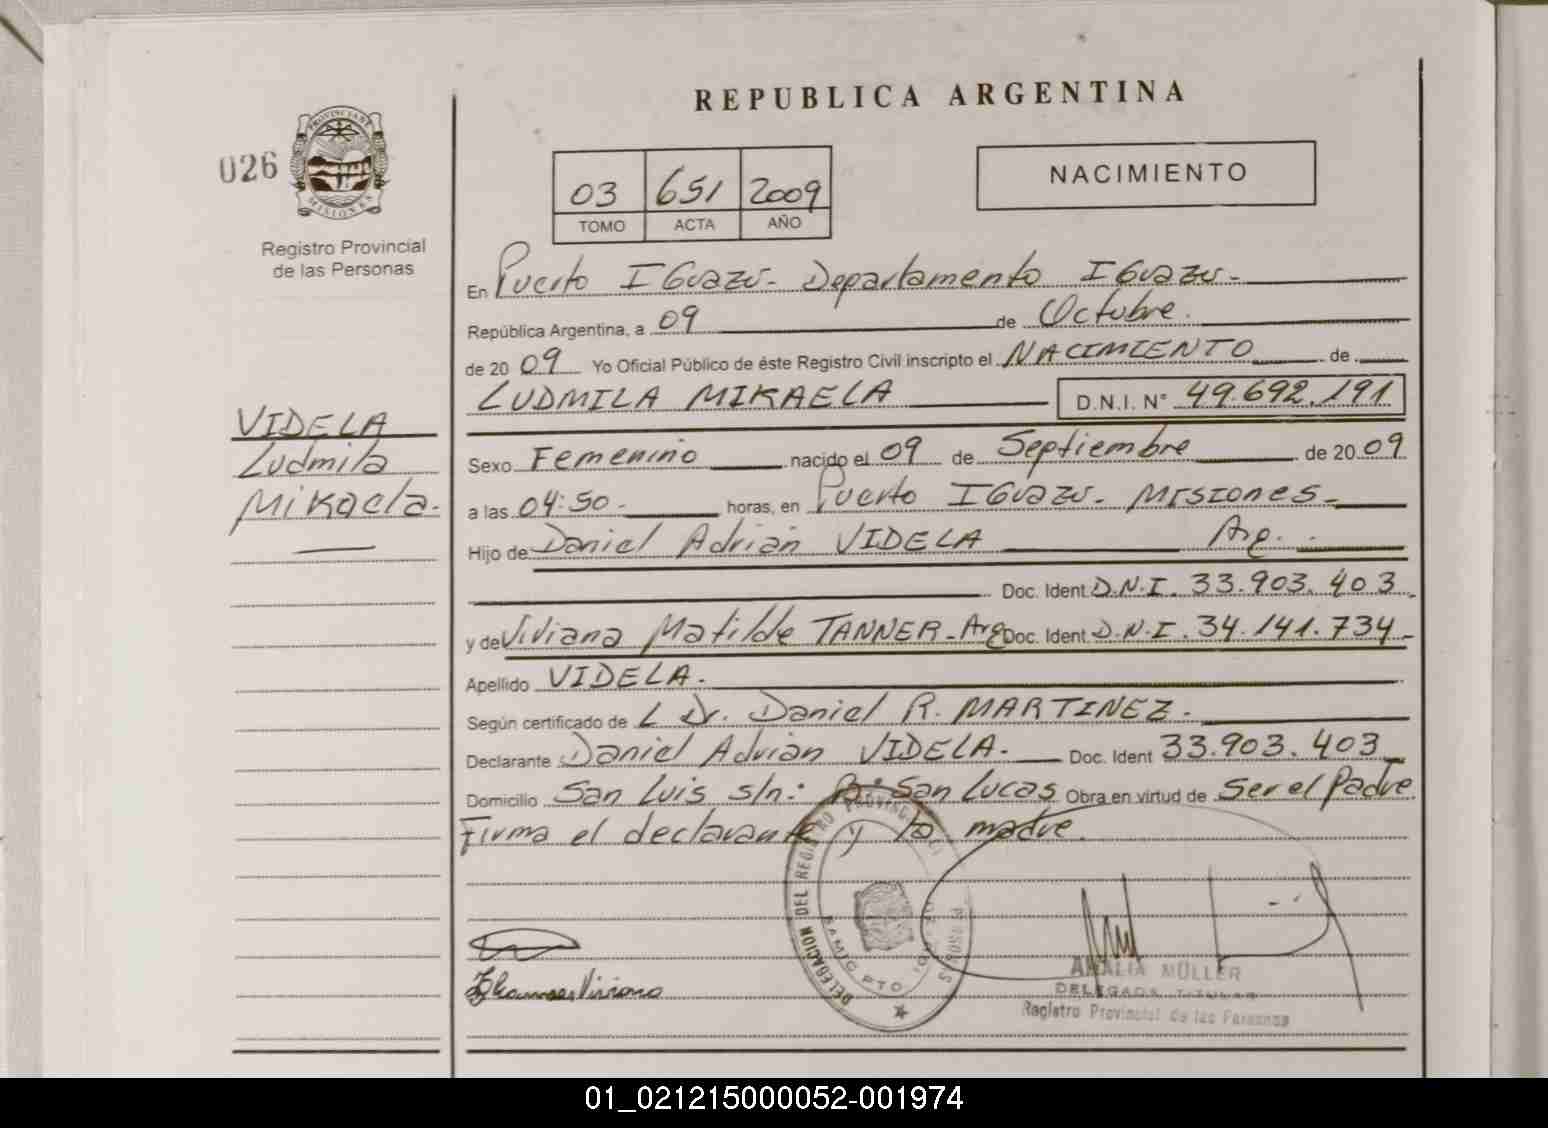 REPUBLICA ARGENTINA
026
PROVINCIA DE
MISIONES
Registro Provincial
de las Personas
03 651 2009
TOMO ACTA AÑO
NACIMIENTO
En Puerto IGuazu- Departamento IGuazu-
República Argentina, a 09 de Octubre.
de 20 09 Yo Oficial Público de éste Registro Civil inscripto el NACIMIENTO de
LUDMILA MIKAELA D.N.I. N° 49.692.191
VIDELA
Ludmila
Mikaela.
Sexo Femenino nacido el 09 de Septiembre de 20 09
a las 04:50. horas, en Puerto IGuazu- MISIONES-
Hijo de: Daniel Adrián VIDELA Arg.
Doc. Ident. D.N.I. 33.903.403.
y de Viviana Matilde TANNER-Arg Doc. Ident. D.N.I. 34.141.734-
Apellido VIDELA.
Según certificado de L Dr. Daniel R. MARTINEZ-
Declarante: Daniel Adrián VIDELA. Doc. Ident 33.903.403
Domicilio San Luis s/n: B: San Lucas Obra en virtud de Ser el Padre
Firma el declarante y la madre.
DELEGACION DEL REGISTRO PROVINCIAL
PTO
Viviana
ANALIA MÜLLER
DELEGADA TITULAR
Registro Provincial de las Personas
01_021215000052-001974